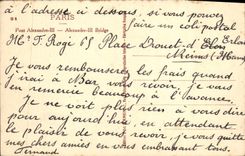 à l'adresse ci dessous, si vous pouvez
faire un colis postal
PARIS
Pont Alexandre-III — Alexandre-III Bridge
Mr F. Roge 65 Place Drouet d' Erlon
Reims (Marne)
Je vous rembourserez les frais quand
j'irai à Bar vous revoir. Je vous
en remercie beaucoup à l'avance.
Je ne voit plus rien à vous dire
pour aujourd'hui, en attendant
le plaisir de vous revoir, je vous quitte
mes chers amies en vous embrassant tous.
Fernande